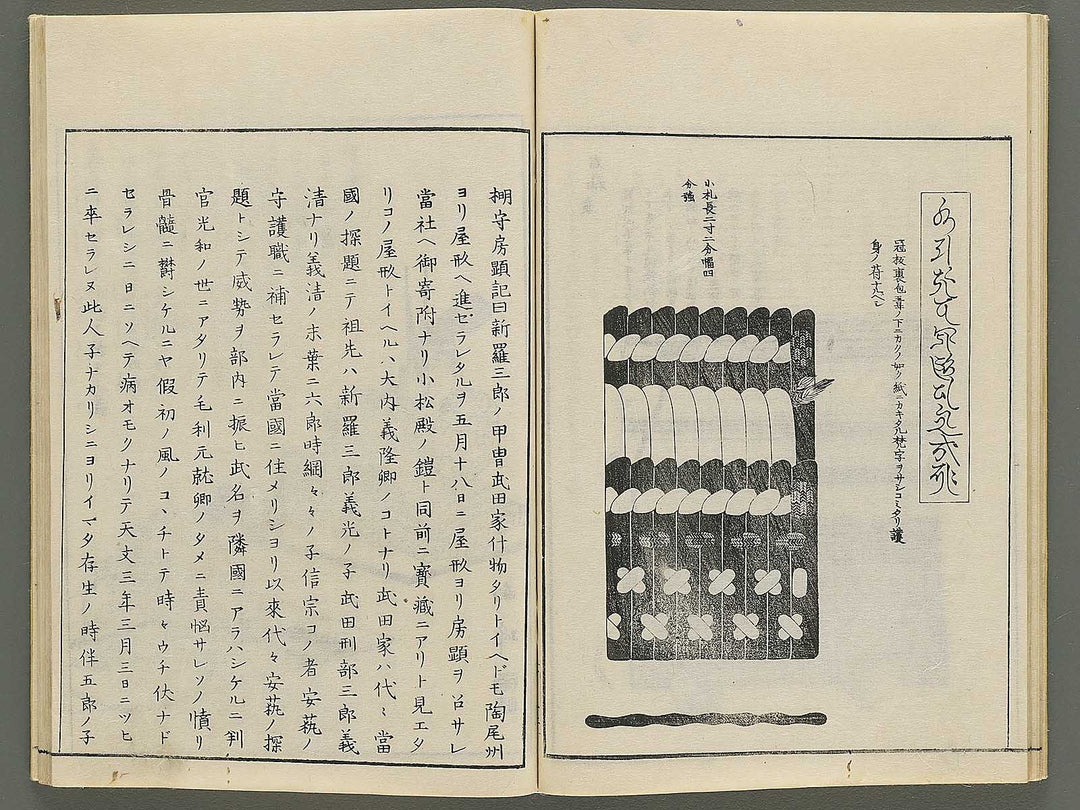 冠板裏包韋ノ下ニカクノ如ク紙ニカキタル梵字ヲサシコミタリ護
身ノ符ナルヘシ
小札長二寸二分幅四
分強
棚守房顕記曰新羅三郎ノ甲冑武田家什物タリトイヘドモ陶尾州
ヨリ屋形ヘ進セラレタルヲ五月十八日ニ屋形ヨリ房顕ヲ召サレ
當社ヘ御寄附ナリ小松殿ノ鎧ト同前ニ寳藏ニアリト見エタ
リコノ屋形トイヘルハ大内義隆卿ノコトナリ武田家ハ代々當
國ノ探題ニテ祖先ハ新羅三郎義光ノ子武田刑部三郎義
清ナリ義清ノ末葉ニ六郎時綱々々ノ子信宗コノ者安蓺ノ
守護職ニ補セラレテ當國ニ住メリシヨリ以來代々安蓺ノ探
題トシテ威勢ヲ部内ニ振ヒ武名ヲ隣國ニアラハシケルニ判
官光和ノ世ニアタリテ毛利元就卿ノタメニ責悩サレソノ憤リ
骨髓ニ欝シケルニヤ假初ノ風ノコヽチトテ時々ウチ伏ナド
セラレシニ日ニソヘテ病オモクナリテ天文三年三月三日ニツヒ
ニ卒セラレヌ此人子ナカリシニヨリイマタ存生ノ時伴五郎ノ子